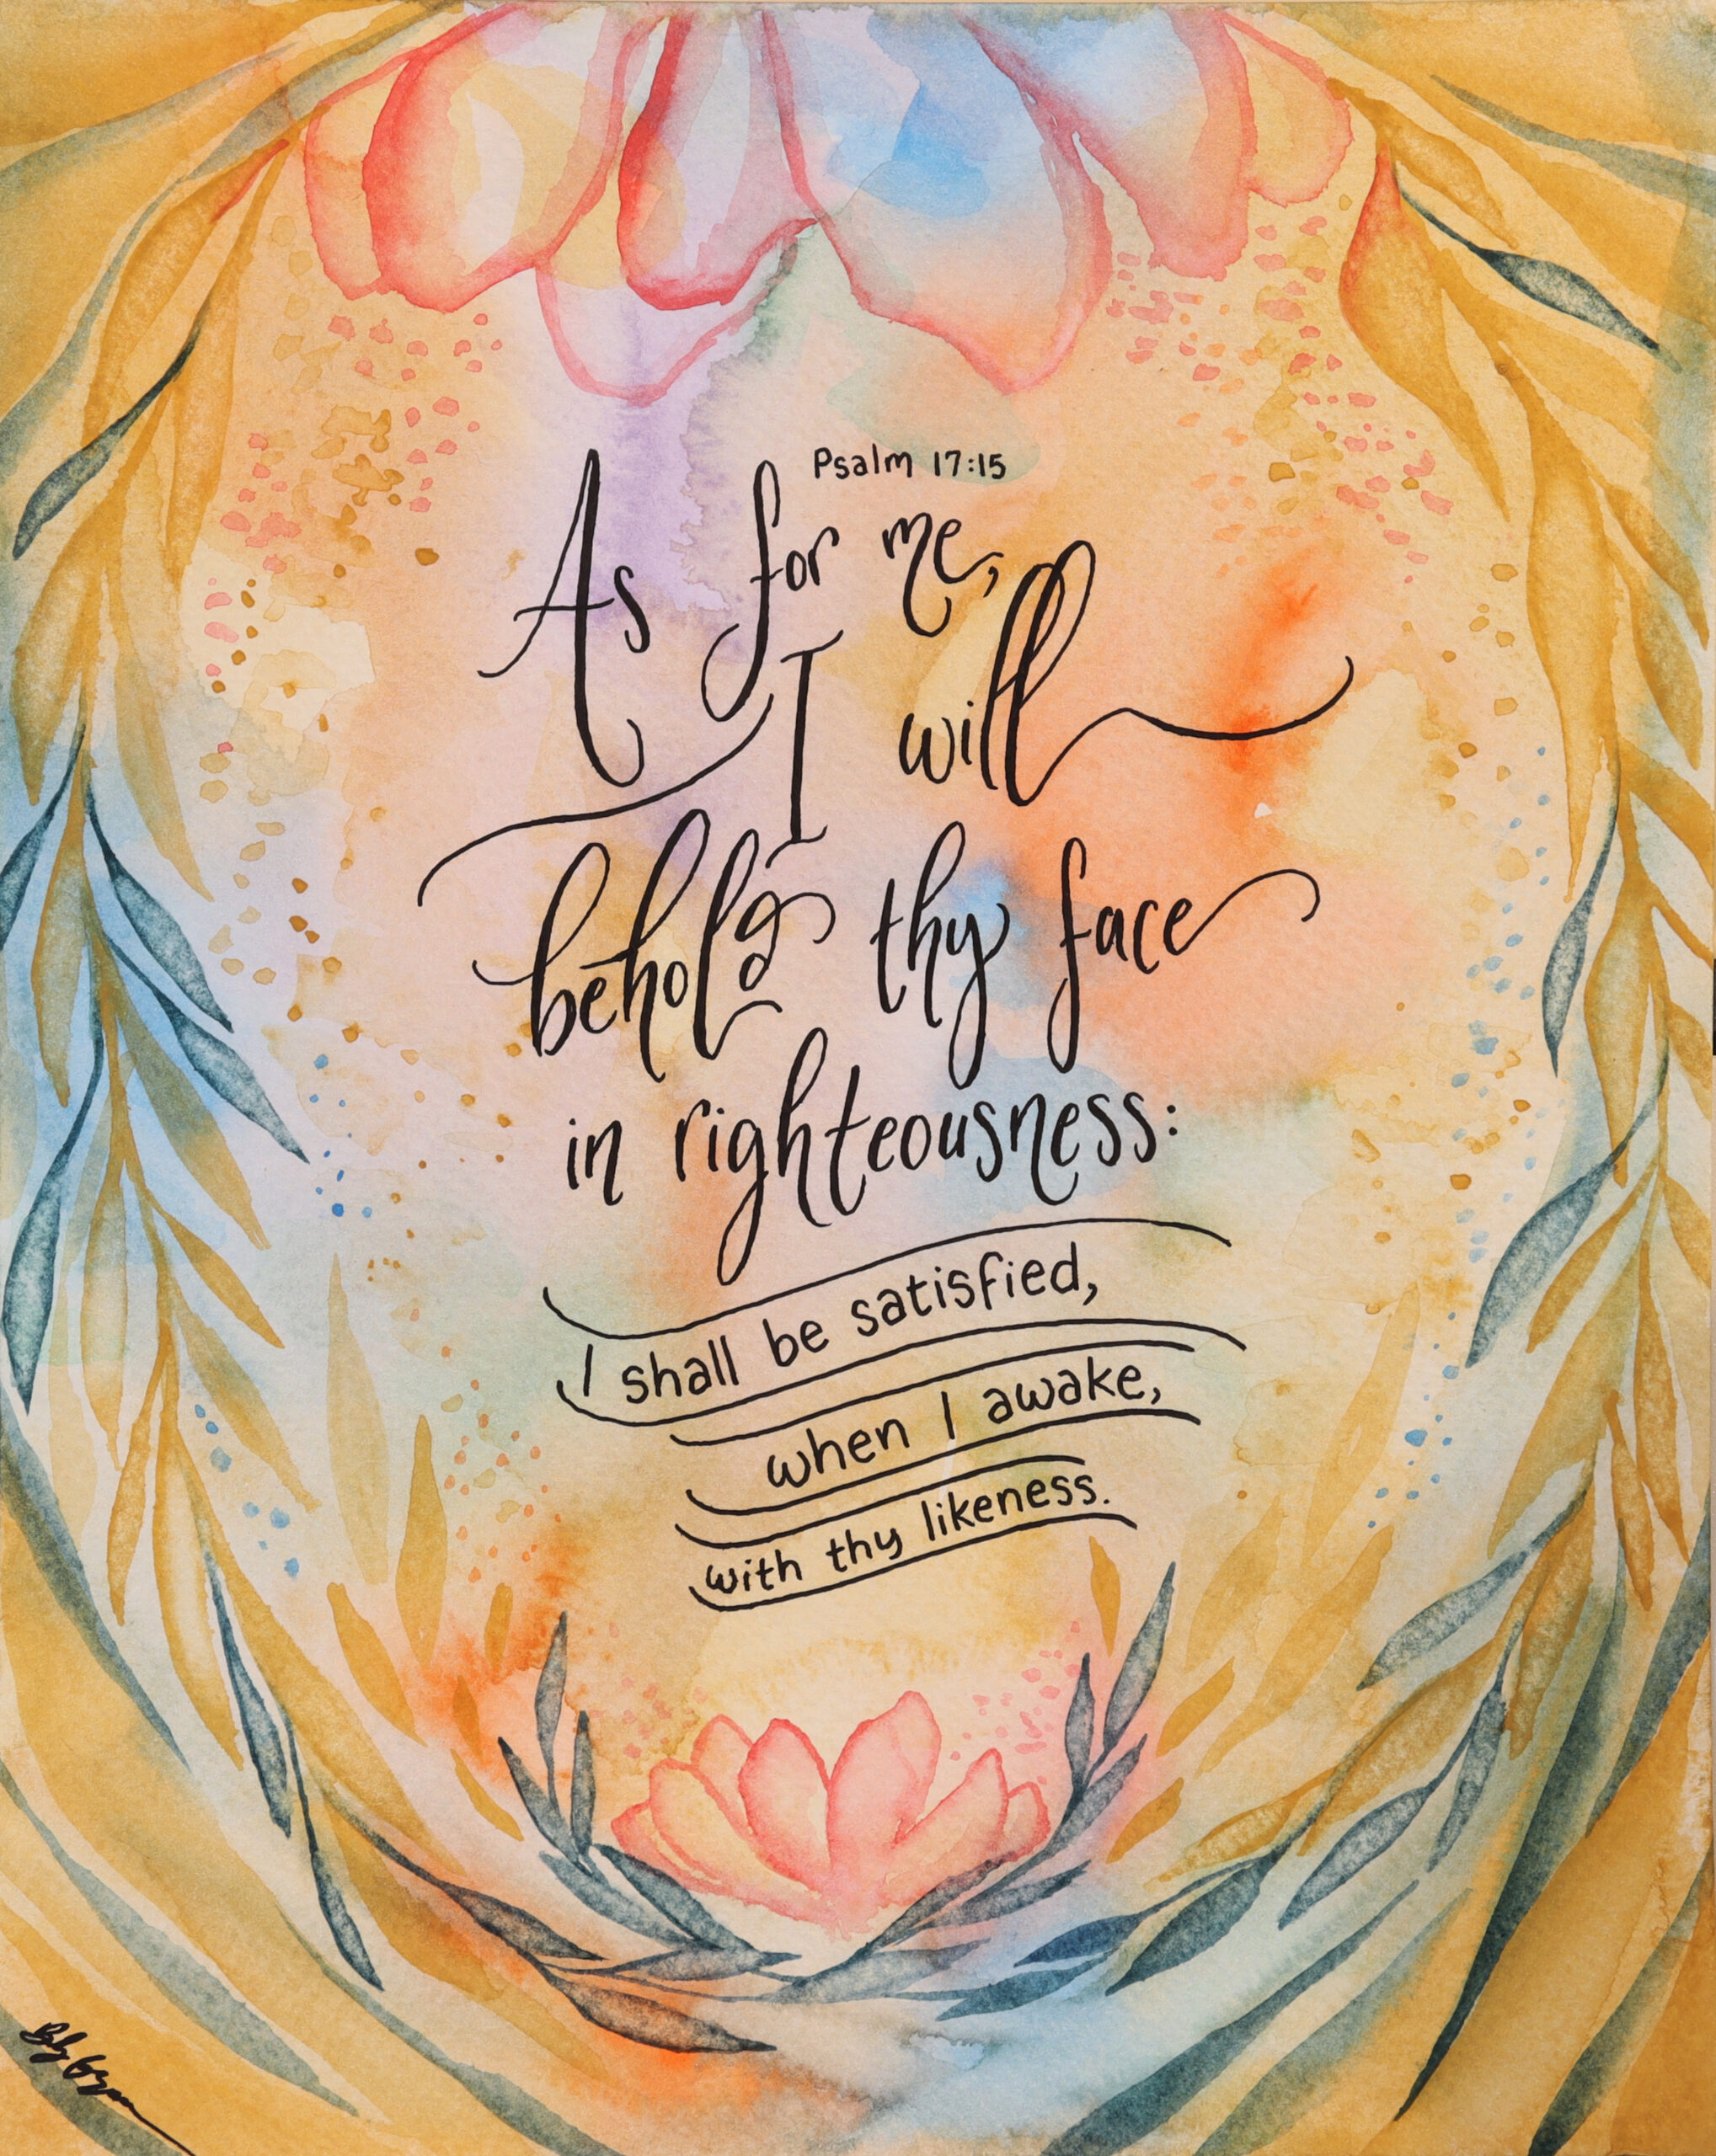 Psalm 17:15
As for me,
I will
behold thy face
in righteousness:
I shall be satisfied,
when I awake,
with thy likeness.